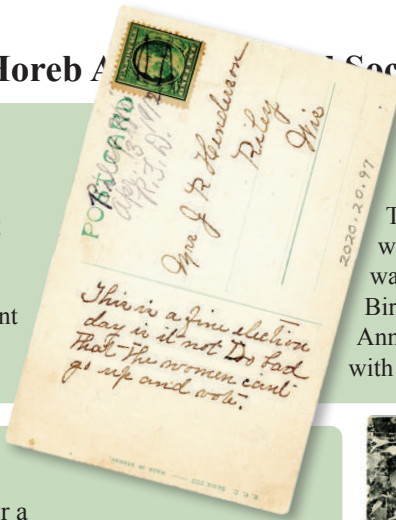 Horeb A
Soc
POST CARD
Riley
Apr. 13 1912
R.F.D.
Mrs J R Henderson
Riley
Wis
2020.20.97
This is a fine election
day is it not Too bad
that the women cant
go up and vote.
MADE IN GERMANY
T
w
wa
Bir
Ann
with
nt
r a